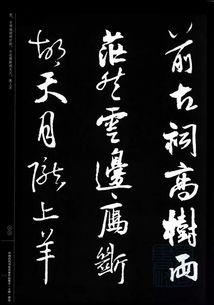 前古祠高樹兩
茫然雲邊雁斷
胡天月隴上羊